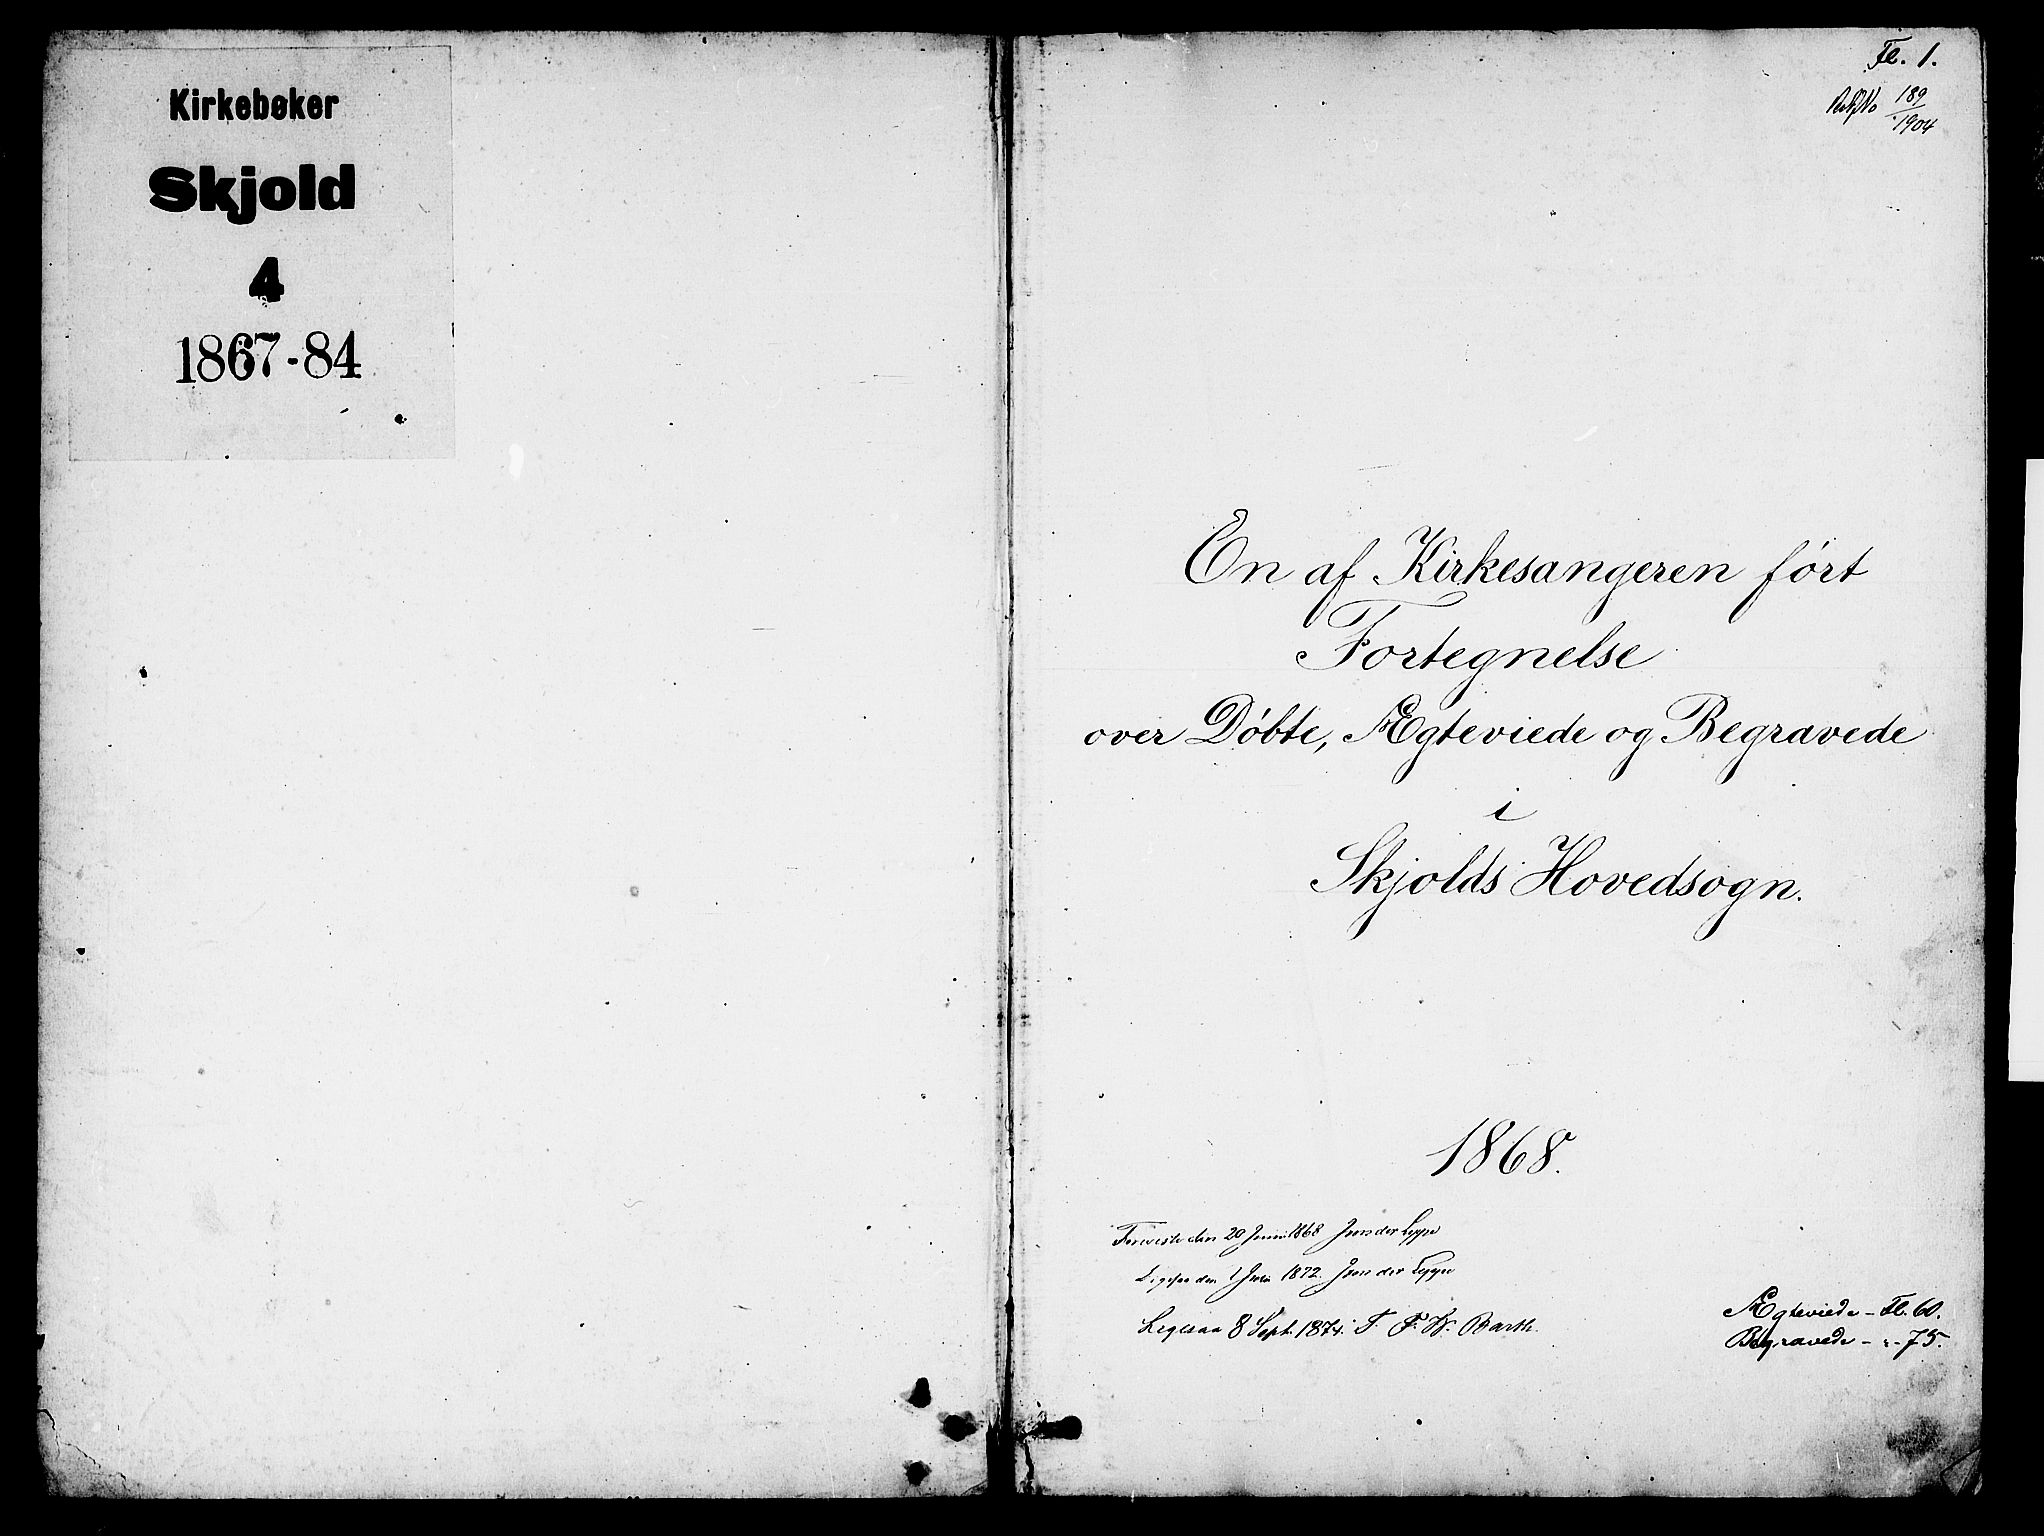 Kirkebøker
Skjold
4
1867-84
Fl. 1.
189
1904
En af Kirkesangeren ført
Fortegnelse
over Døbte, Ægteviede og Begravede
i
Skjolds Hovedsogn.
1868.
Foreviste den 20 Juni 1868
Ligesaa den 1 Juni 1872.
Ligesaa 8 Sept. 1874. T. F. W. Barth.
Ægteviede - Fl. 60.
Begravede - "- 75.